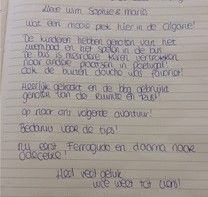 Lieve Wim, Sophie & Mario
Wat een mooie plek hier in de Algarve!
De kinderen hebben genoten van het
zwembad en het spelen in de bus.
De bus is meerdere keren vertrokken
naar andere plaatsen in Portugal!
Ook de buiten douche was favoriet!
Heerlijk gekookt en de bbq gebruikt
genoten van de ruimte en rust!
Op naar ons volgende avontuur!
Bedankt voor de tips!
Nu eerst Ferragudo en daarna naar
Odeceixe!
Heel veel geluk
wie weet tot ziens!